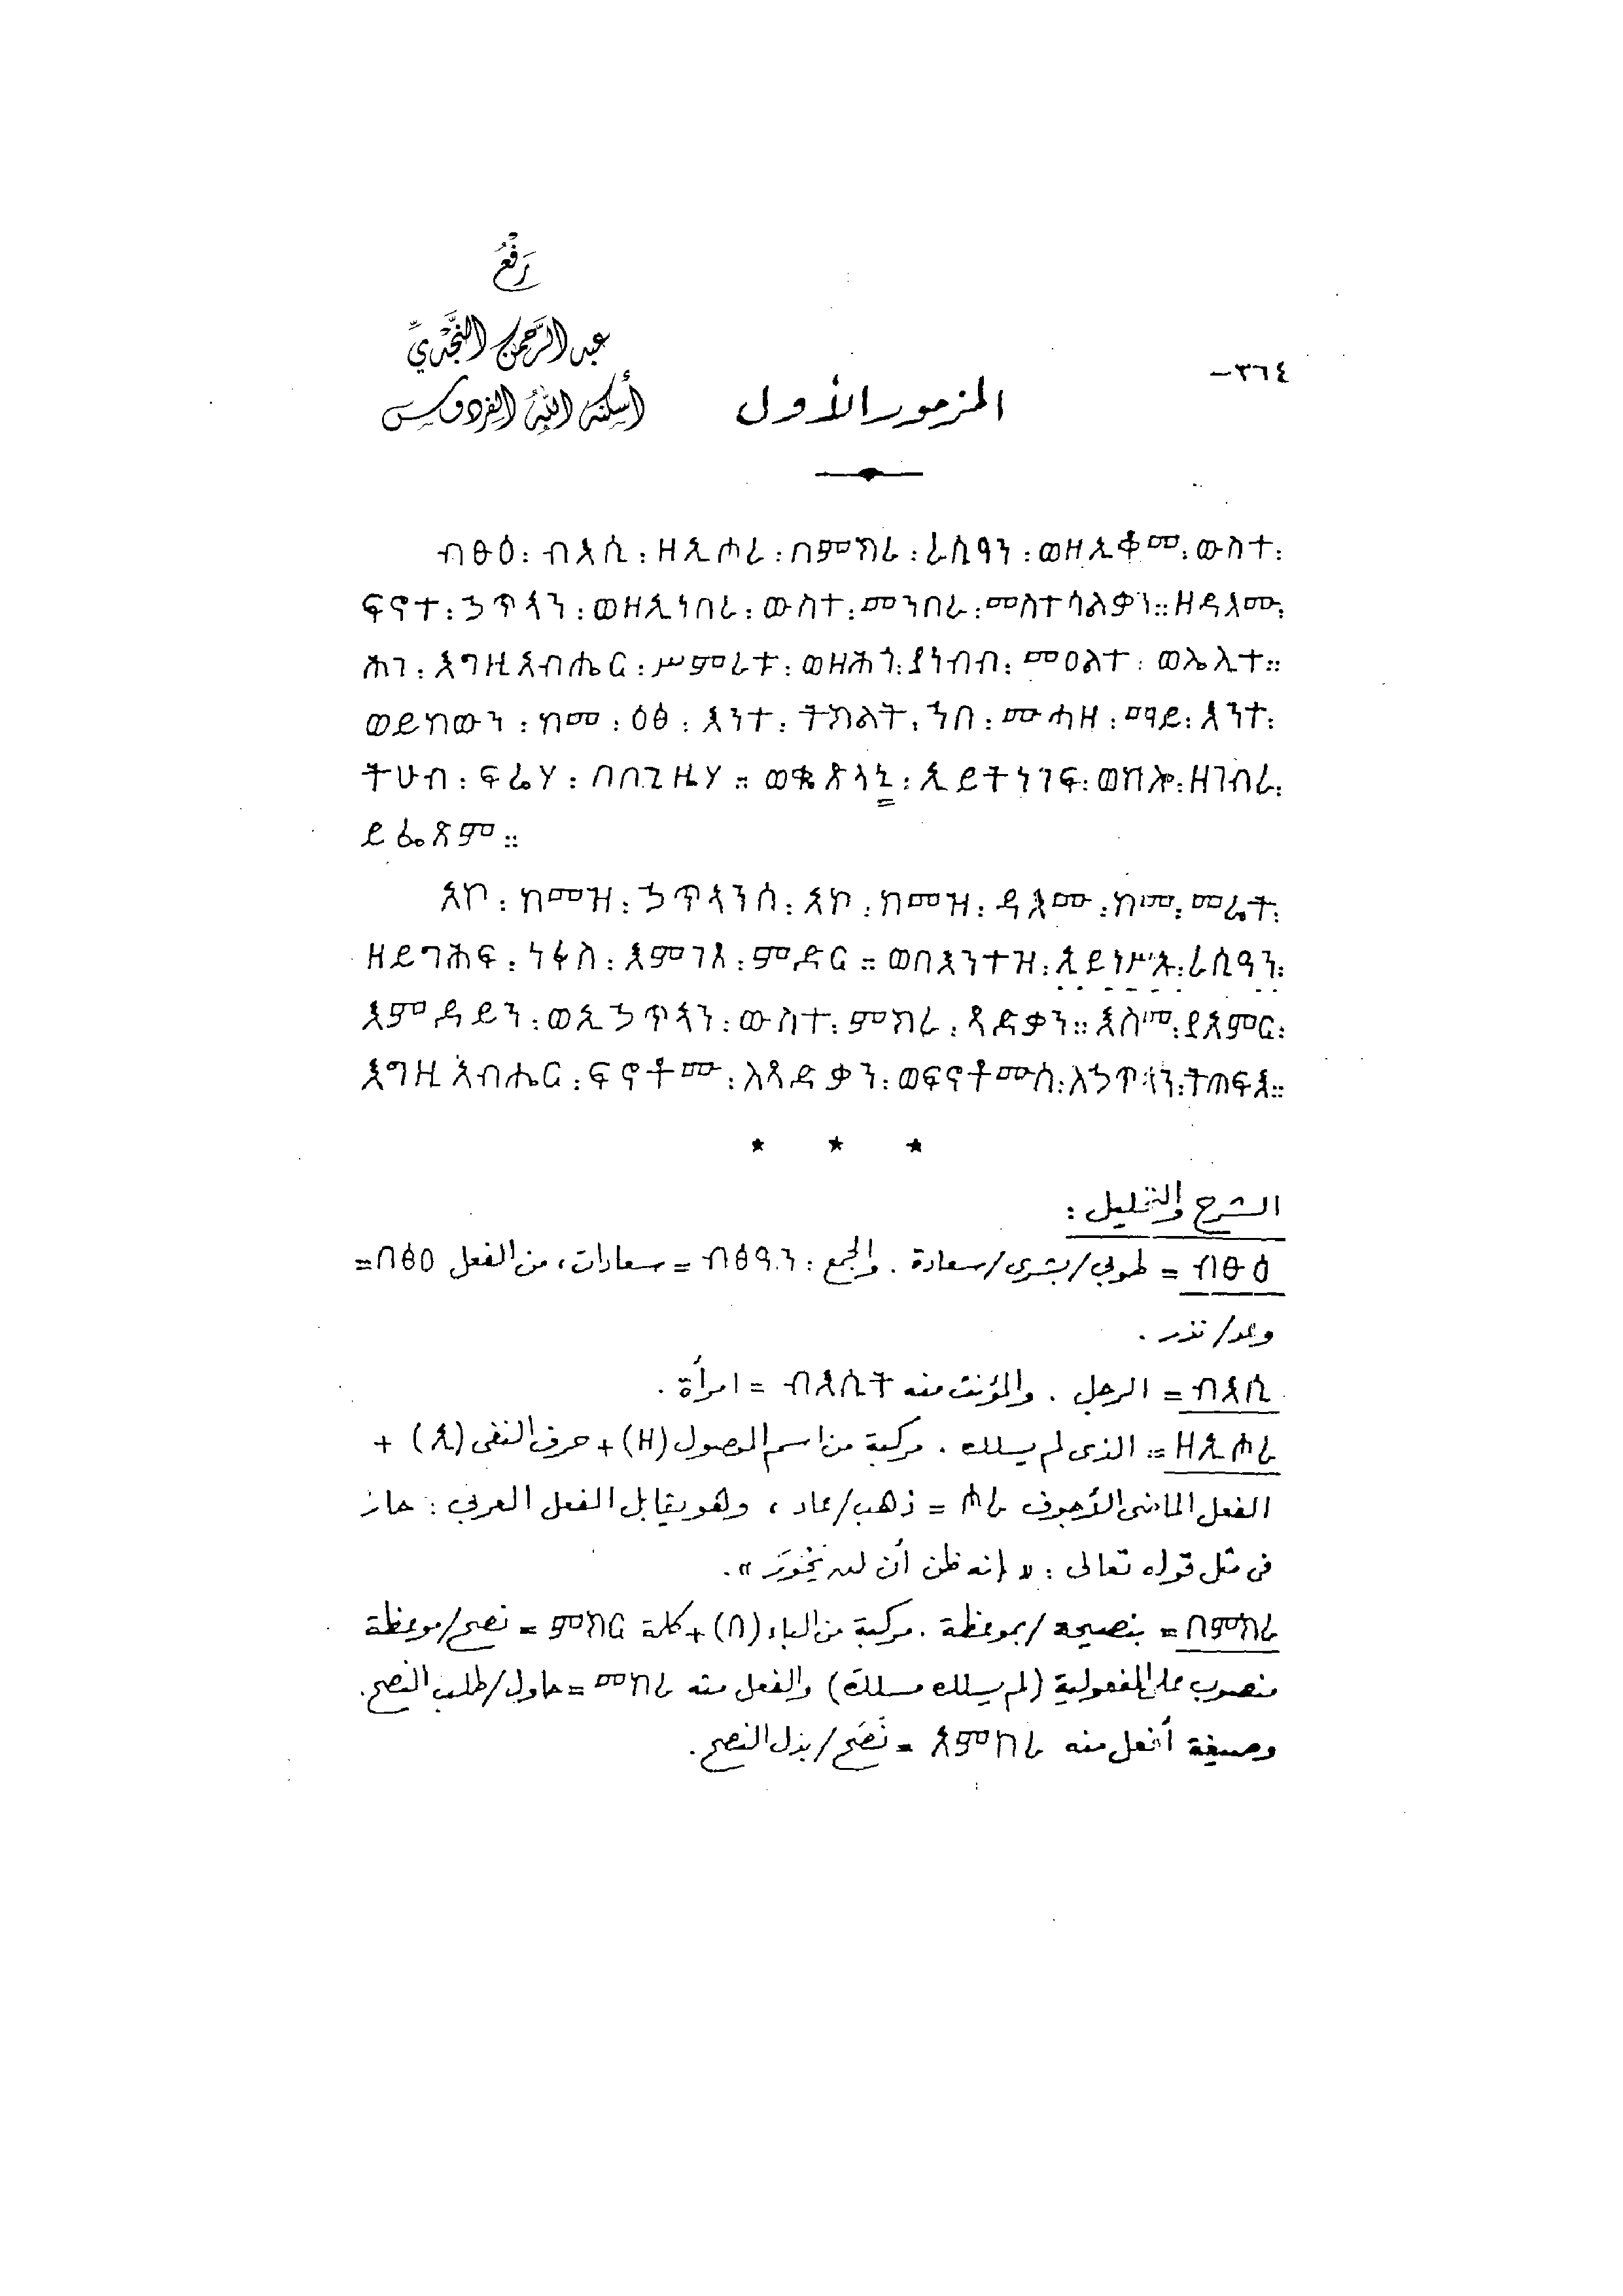 رَفْعُ
عبد الرَّحمن النَّجْدِيِّ
أسكنه اللهُ الفردوس
-٣٦٤
المزمور الأول
ብፁዕ፡ ብእሲ፡ ዘኢሖረ፡ በምክረ፡ ረሲዓን፡ ወዘኢቆመ፡ ውስተ፡
ፍኖተ፡ ኃጥኣን፡ ወዘኢነበረ፡ ውስተ፡ መንበረ፡ መስተሳልቃን። ዘዳእሙ፡
ሕገ፡ እግዚአብሔር፡ ሥምረቱ፡ ወዘሕጎ፡ ያነብብ፡ መዐልተ፡ ወሌሊተ።
ወይከውን፡ ከመ፡ ዕፅ፡ እንተ፡ ትክልት፡ ኀበ፡ ሙሓዘ፡ ማይ፡ እንተ፡
ትሁብ፡ ፍሬሃ፡ በበጊዜሃ። ወቈጽላኒ፡ ኢይትነገፍ፡ ወኵሎ፡ ዘገብረ፡
ይፌጽም።
አኮ፡ ከመዝ፡ ኃጥኣንሰ፡ አኮ፡ ከመዝ፡ ዳእሙ፡ ከመ፡ መሬት፡
ዘይግሕፍ፡ ነፋስ፡ እምገጸ፡ ምድር። ወበእንተዝ፡ ኢይነሥኡ፡ ረሲዓን፡
እምዳይን፡ ወኢኃጥኣን፡ ውስተ፡ ምክረ፡ ጻድቃን። እስመ፡ ያአምር፡
እግዚአብሔር፡ ፍኖቶሙ፡ ለጻድቃን፡ ወፍኖቶሙሰ፡ ለኃጥኣን፡ ትጠፍእ።
* * *
الشرح والتحليل :
ብፁዕ = طوبى/بشرى/سعادة . والجمع : = سعادات، من الفعل በፅዐ =
وعد/ نذر .
ብእሲ = الرجل . والمؤنث منه ብእሲት = امرأة .
ዘኢሖረ = الذى لم يسلك . مركبة من اسم الموصول (ዘ) + حرف النفى (ኢ) +
الفعل الماضى الأجوف ሖረ = ذهب/عاد ، وهو يقابل الفعل العربى : حار
فى مثل قوله تعالى : « إنه ظن أن لن يَحُورَ » .
በምክረ = بنصيحة / بموعظة . مركبة من الباء (በ) + كلمة ምክር = نصح/موعظة
منصوب على المفعولية (لم يسلك مسلك) والفعل منه መከረ = حاول/طلب النصح.
وصيغة أفعل منه አምከረ = نَصَحَ / بذل النصح .